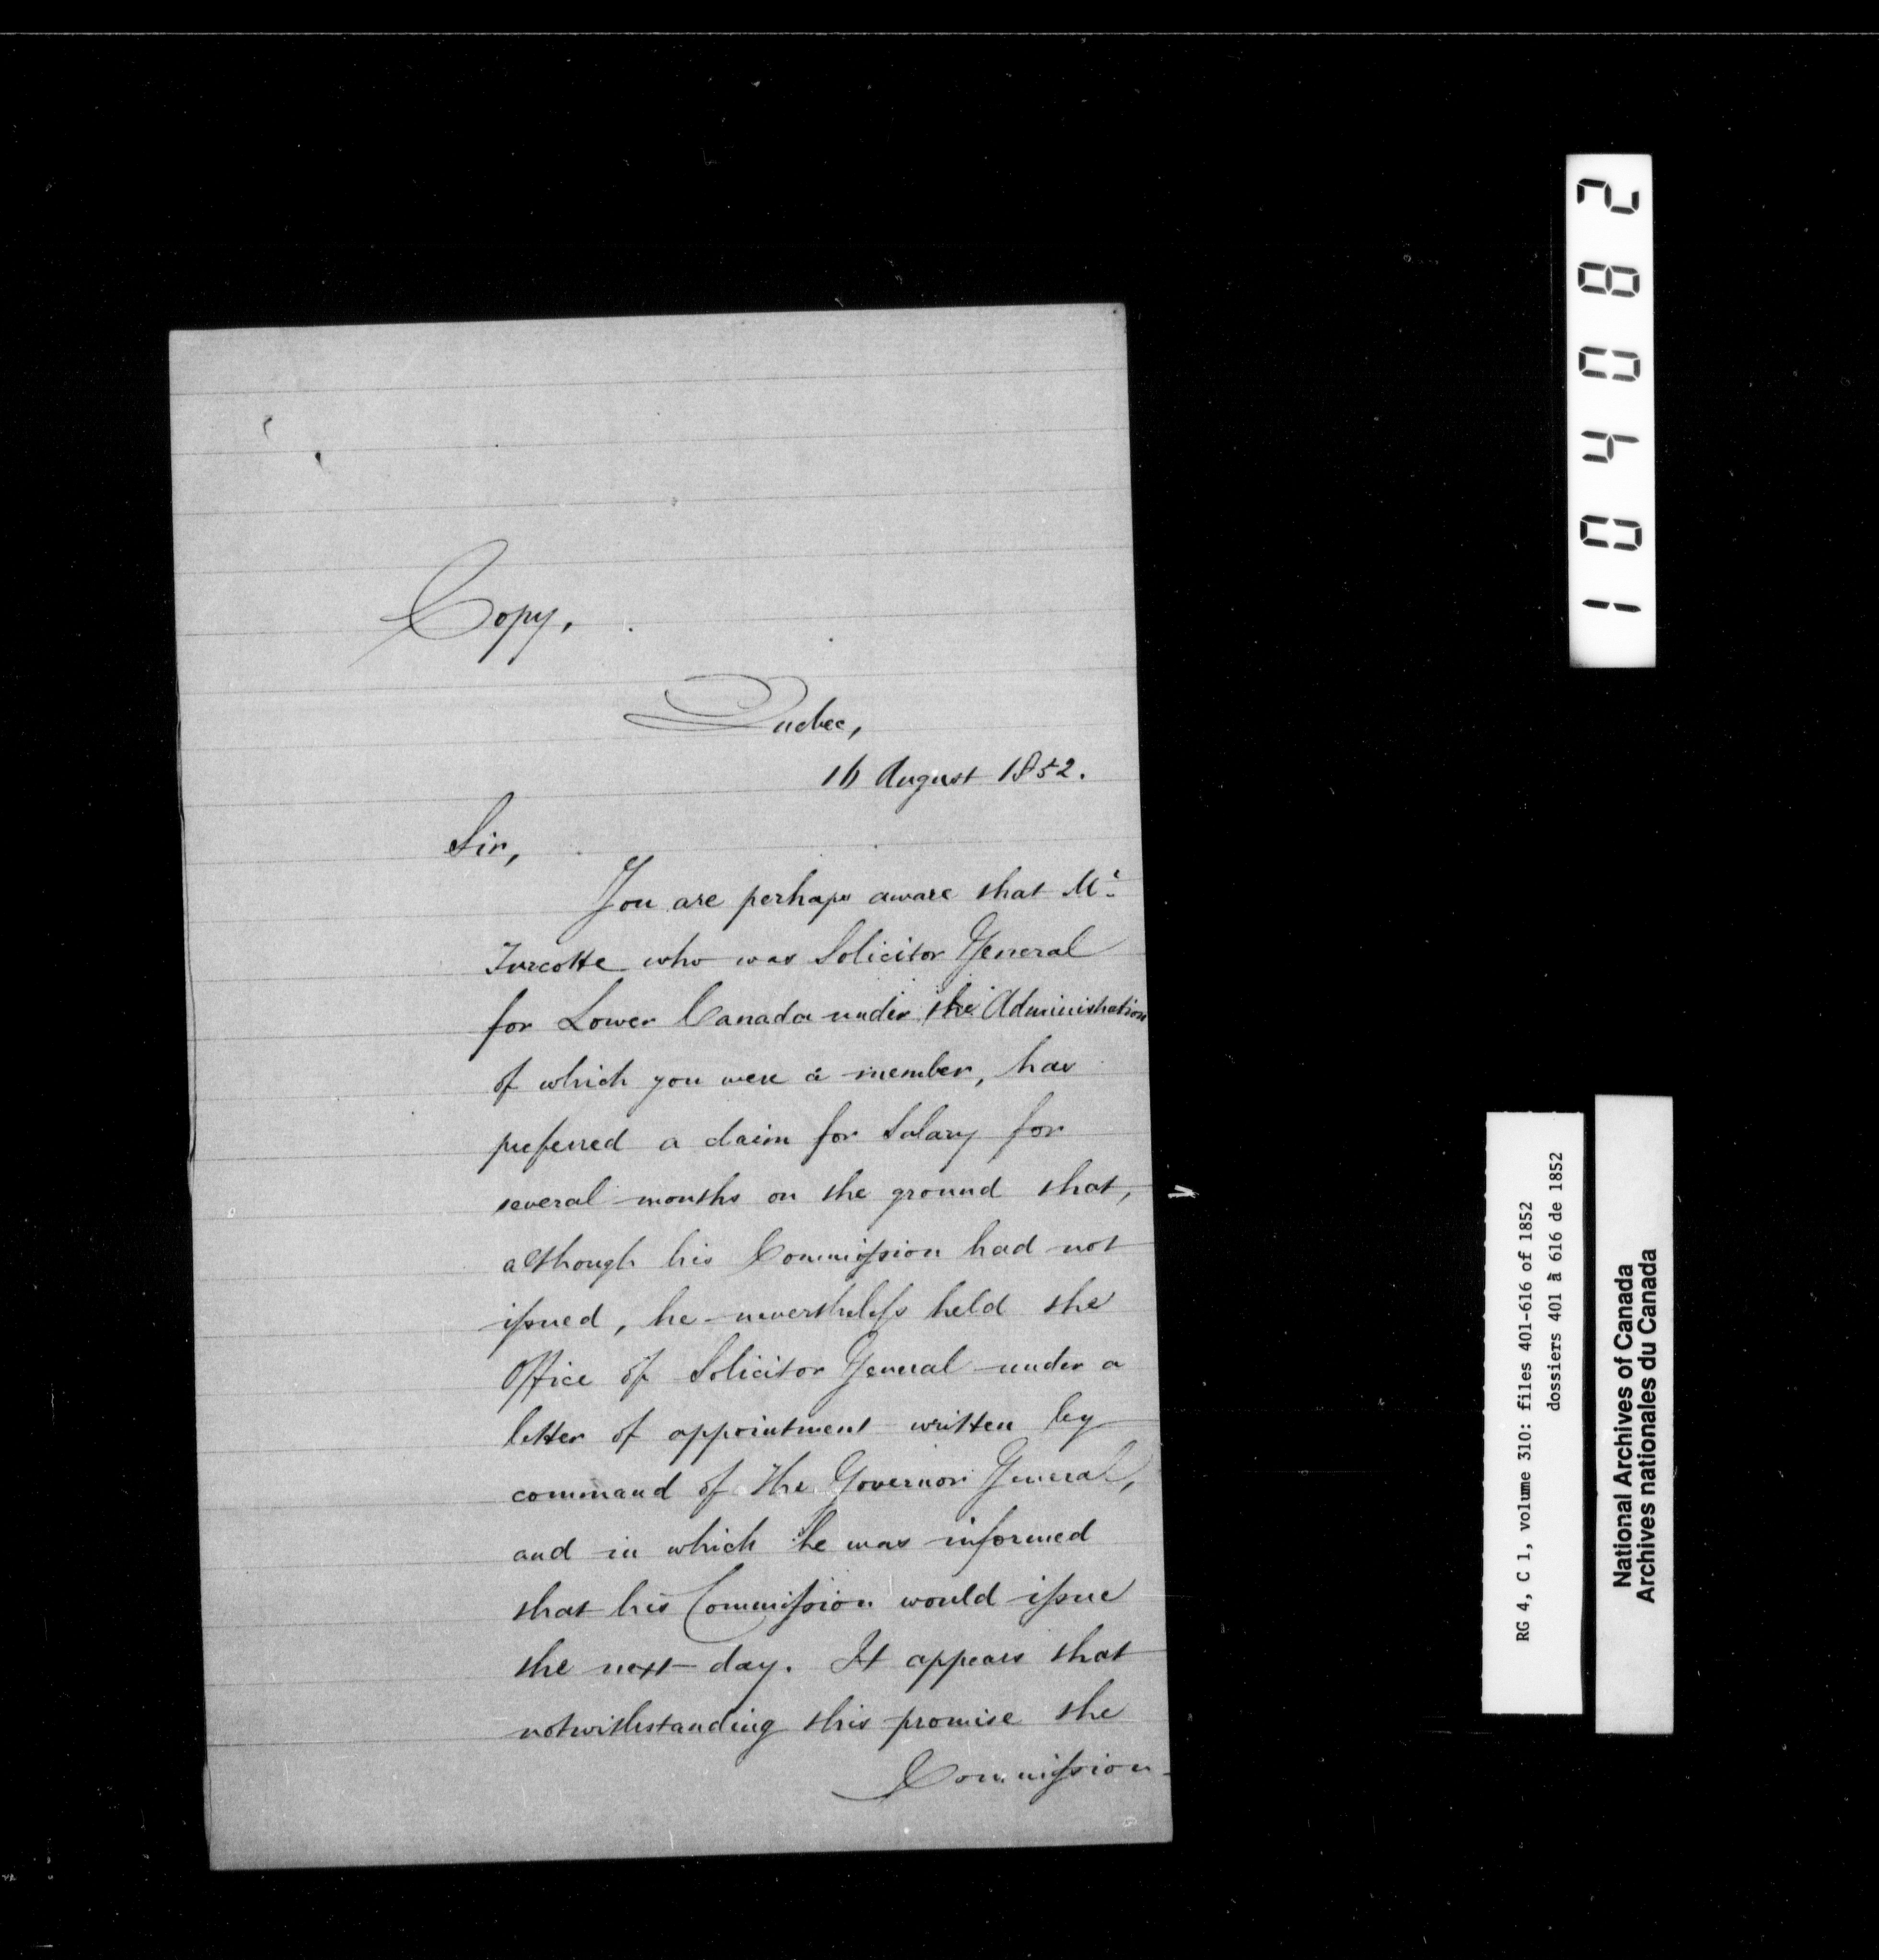 Copy.
Quebec,
16 August 1852.
Sir,
You are perhaps aware that Mr.
Turcotte who was Solicitor General
for Lower Canada under the Administration
of which you were a member, has
preferred a claim for Salary for
several months on the ground that,
although his Commission had not
issued, he nevertheless held the
Office of Solicitor General under a
letter of appointment written by
command of the Governor General,
and in which he was informed
that his Commission would issue
the next day. It appears that
notwithstanding this promise the
Commission
104082
RG 4, C 1, volume 310: files 401-616 of 1852
dossiers 401 à 616 de 1852
National Archives of Canada
Archives nationales du Canada